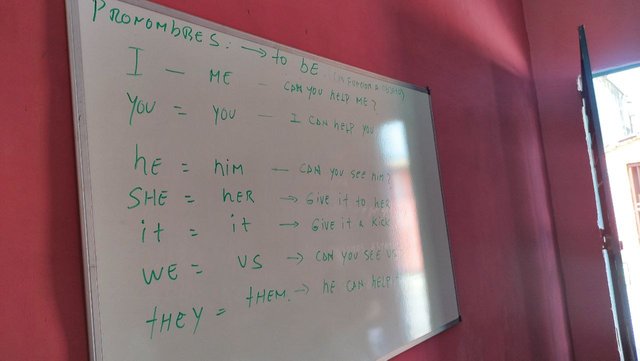 PRONOMBRES: → to BE. (in Funcion a objeto)
I — ME — CAN YOU HELP ME?
YOU = YOU — I CAN HELP YOU
HE = HIM — CAN YOU SEE HIM?
SHE = HER → GIVE it to HER
it = it → GIVE it A KICK
WE = US → CAN YOU SEE US
THEY = THEM. → HE CAN HELP